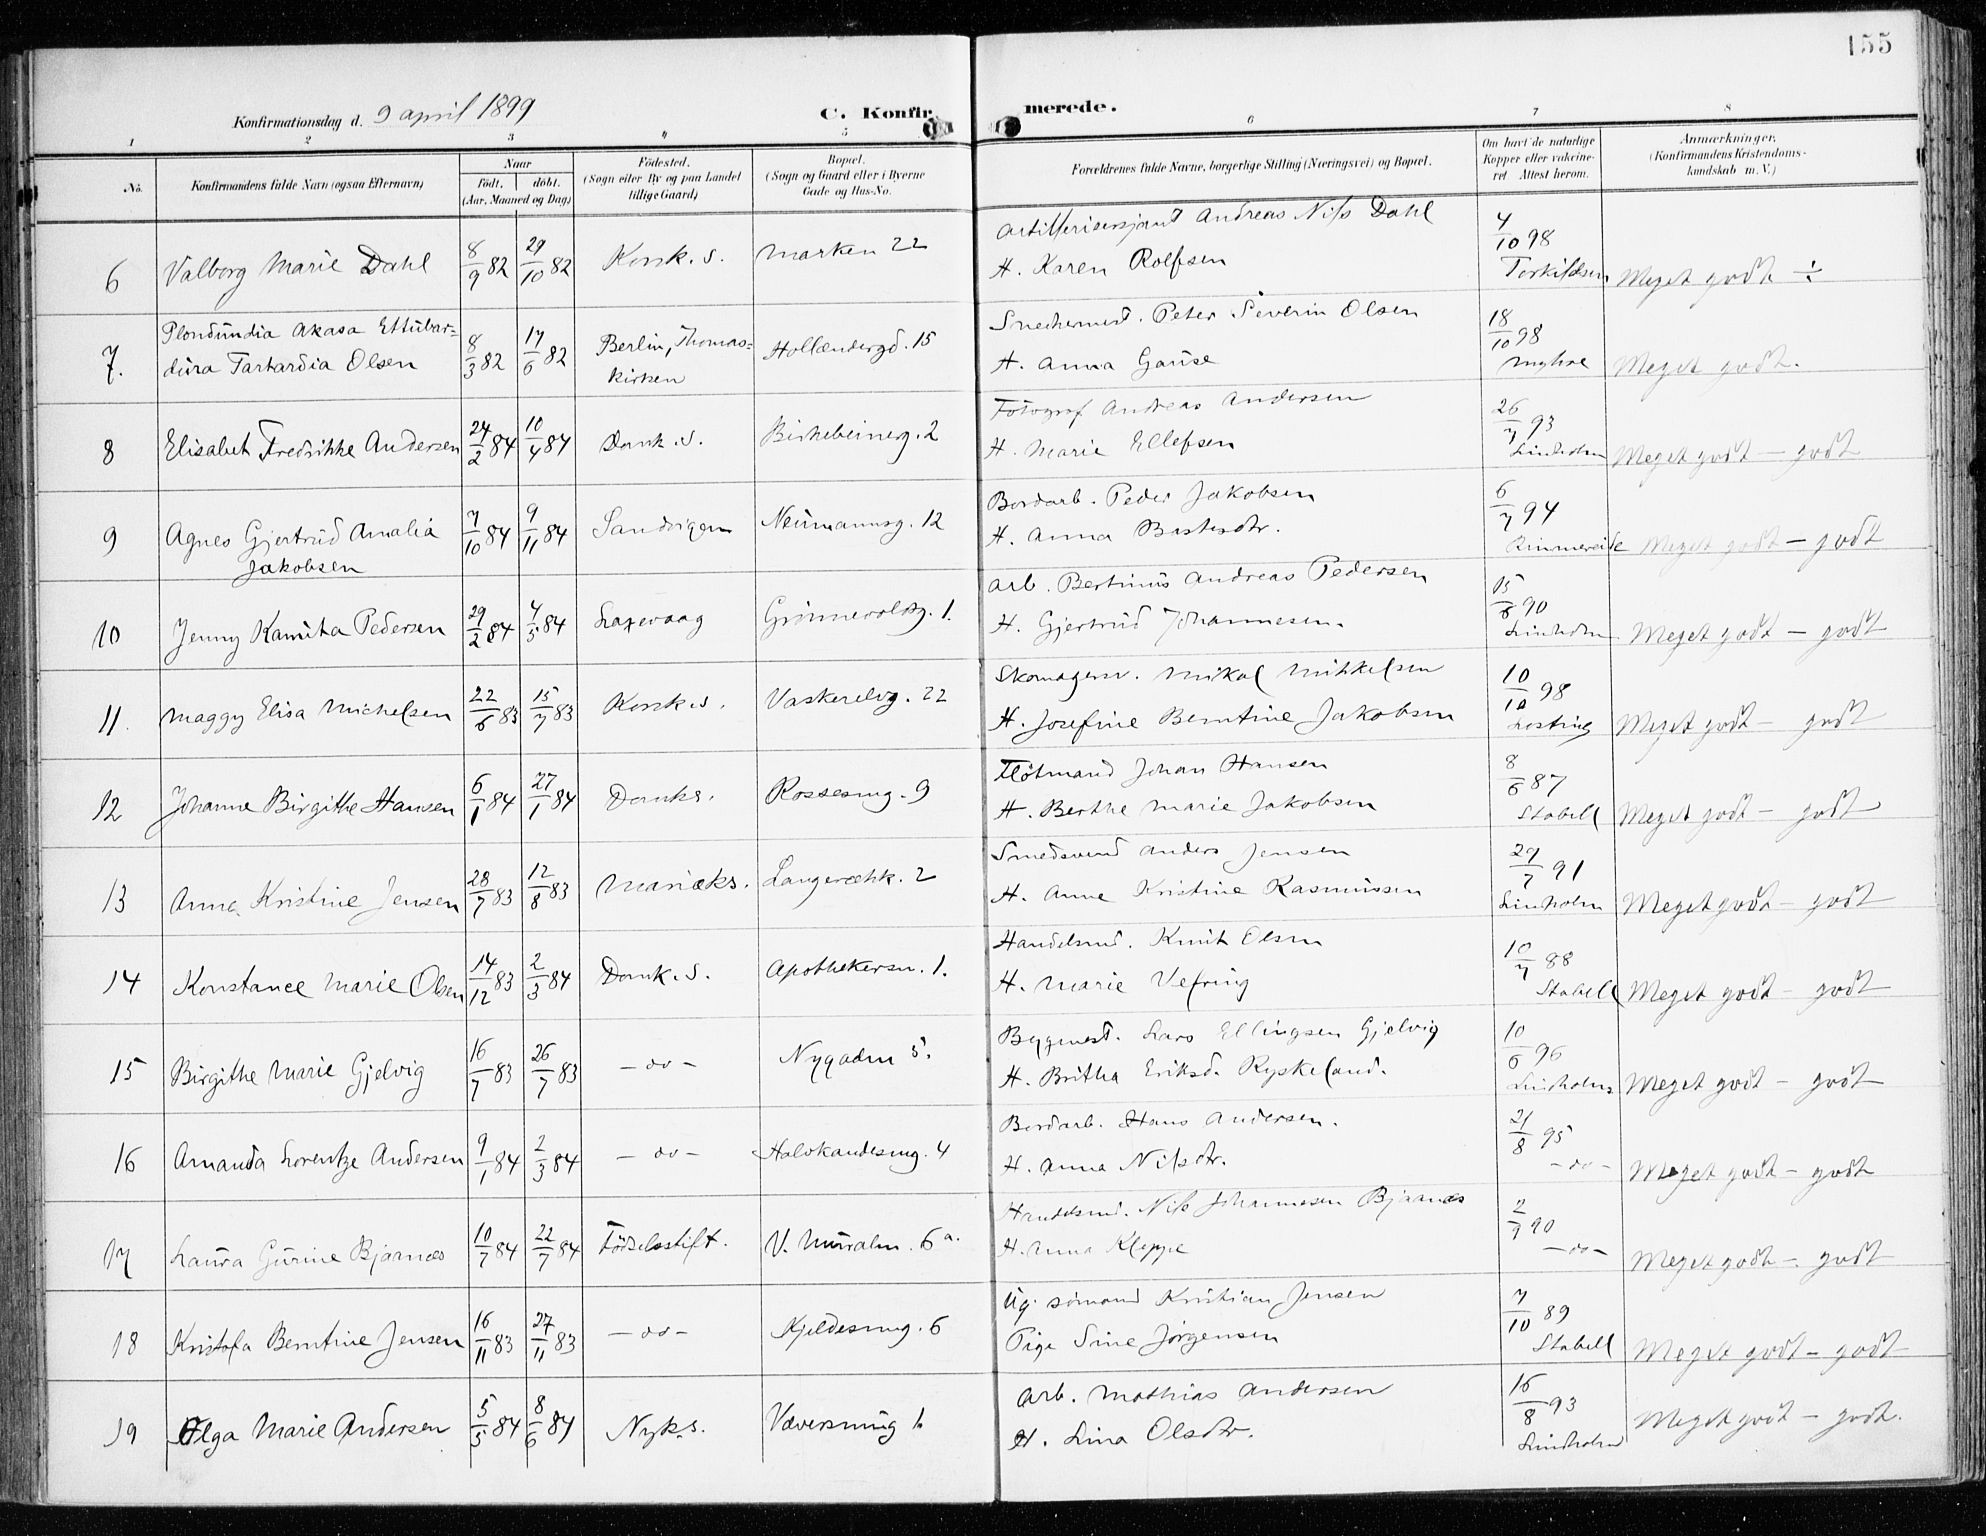 155
Konfirmationsdag d. 9 april 1899 C. Konfirmerede.
1 2 3 4 5 6 7 8
No. Konfirmandens fulde Navn (ogsaa Efternavn) Naar födt, döbt. (Aar, Maaned og Dag) Födested. (Sogn eller By og paa Landet tillige Gaard) Bopæl. (Sogn og Gaard eller i Byerne Gade og Hus-No. Forældrenes fulde Navne, borgerlige Stilling (Næringsvei) og Bopæl. Om havt de naturlige Kopper eller vakcineret Attest herom. Anmærkninger, (Konfirmandens Kristendomskundskab m. V.)
6 Valborg Marie Dahl 8/9 82 29/10 82 Korsk. s. Marken 22 Artillerisersjant Andreas Nils Dahl 4/10 98
H. Karen Rolfsen Torkildsen Meget godt ÷
7. Plondundia Akasa Ettubardura Tartardia Olsen 8/3 82 17/6 82 Berlin, Thomaskirken Hollændergd. 15 Snedkermest. Peter Severin Olsen 18/10 98
H. Anna Gause Myhre Meget godt.
8 Elisabet Fredrikke Andersen 24/2 84 10/4 84 Domk. s. Birkebeinerg. 2 Fotograf Andreas Andersen 26/7 93
H. Marie Ellefsen Lindholm Meget godt - godt
9 Agnes Gjertrud Amalia Jakobsen 7/10 84 9/11 84 Sandvigen Neumannsg. 12 Bordarb. Peder Jakobsen 6/7 94
H. Anna Meget godt - godt
10 Jenny Kamita Pedersen 29/2 84 4/5 84 Laxevaag 1. Arb. Bertinus Andreas Pedersen 15/8 90
H. Gjertrud Johannesen. Lindholm Meget godt - godt
11. Maggy Elisa Michelsen 22/6 83 15/7 83 Korsk. s. Vaskerelvg. 22 Skomagersv. Mikal Mikkelsen 10/10 98
H. Josefine Berntine Jakobsen Losting Meget godt - godt
12 Johanne Birgithe Hansen 6/1 84 27/1 84 Domks. Rossesmg. 9 Flötmand Johan Hansen 8/6 87
H. Berthe Marie Jakobsen Stabell Meget godt - godt
13 Anna Kristine Jensen 28/7 83 12/8 83 Mariæks. Langerækk. 2 Smedsvend Anders Jensen 29/7 91
H. Anne Kristine Rasmussen Lindholm Meget godt - godt
14 Konstance Marie Olsen 14/12 83 2/3 84 Domk. s. Apothekersm. 1. Handelsmd. Knut Olsen 10/7 88
H. Marie Vefring Stabell Meget godt - godt
15 Birgithe Marie Gjelvig 16/7 83 26/7 83 - do - Nygaden 5. Bygmest. Lars Ellingsen Gjelvig 10/6 96
H. Britha Eriksd. Ryskeland. Lindholm Meget godt - godt
16 Amanda Lorentze Andersen 9/1 84 2/3 84 - do - Halvkandesmg. 4 Bordarb. Hans Andersen. 21/8 95
H. Anna Nilsdtr. - do - Meget godt - godt
17 Laura Gurine Bjaanæs 10/7 84 22/7 84 Födselsstift. V. Muralm. 6 a. Handelsmd. Nils Johannesen Bjaanæs 2/9 90
H. Anna Kleppe - do - Meget godt - godt
18 Kristofa Berntine Jensen 16/11 83 27/11 83 - do - Kjeldesmg. 6 Ug. sömand Kristian Jensen 7/10 89
Pige Sine Jørgensen Stabell Meget godt - godt
19 Olga Marie Andersen 5/5 84 8/6 84 Nyk. s. Væversmug 1. Arb. Mathias Andersen 16/8 93
H. Lina Olsdtr. Lindholm Meget godt - godt.